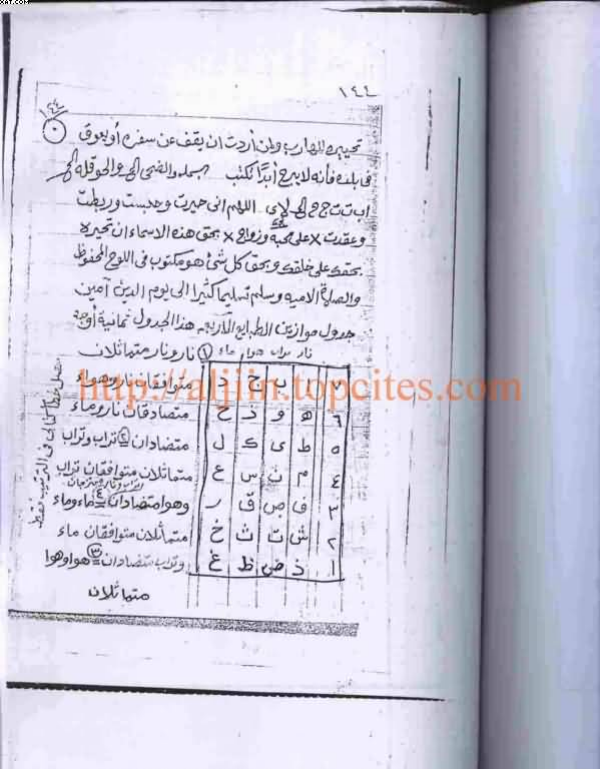 XAT.COM
١٤٤
١٤٤
٥
تحييره للهارب ولمن أردت ان يقف عن سفره أو يعوق
فى بلده فانه لا يبرح أبدًا تكتب بسمله والضحى الى والحوقله الى
اب ت ث ج ح الى لاى اللهم انى حيرت وحبست وربطت
وعقدت x على محبة وزواج x بحق هذه الاسماء ان تحيره
بحقك على خلقك وبحق كل شئ هو مكتوب فى اللوح المحفوظ
والصلاة الاميه وسلم تسليما كثيرا الى يوم الدين آمين
جدول موازين الطبايع الأربعه هذا الجدول ثمانية أوجه
نار تراب هوا ماء
ا ب ج د
٦ ه و ز ح
٥ ط ى ك ل
٤ م ن س ع
٣ ف ص ق ر
٢ ش ت ث خ
١ ذ ض ظ غ
١ نار ونار متماثلان
متوافقان نار وهواء
متصادقان نار وماء
متضادان ٢ تراب وتراب
متماثلان متوافقان تراب
وهوا متضادان ٤ ماء وماء
متماثلان متوافقان ماء
وتراب متضادان ٣ هوا وهوا
متماثلان
فى الترتيب فقط
http://aljiin.topcites.com